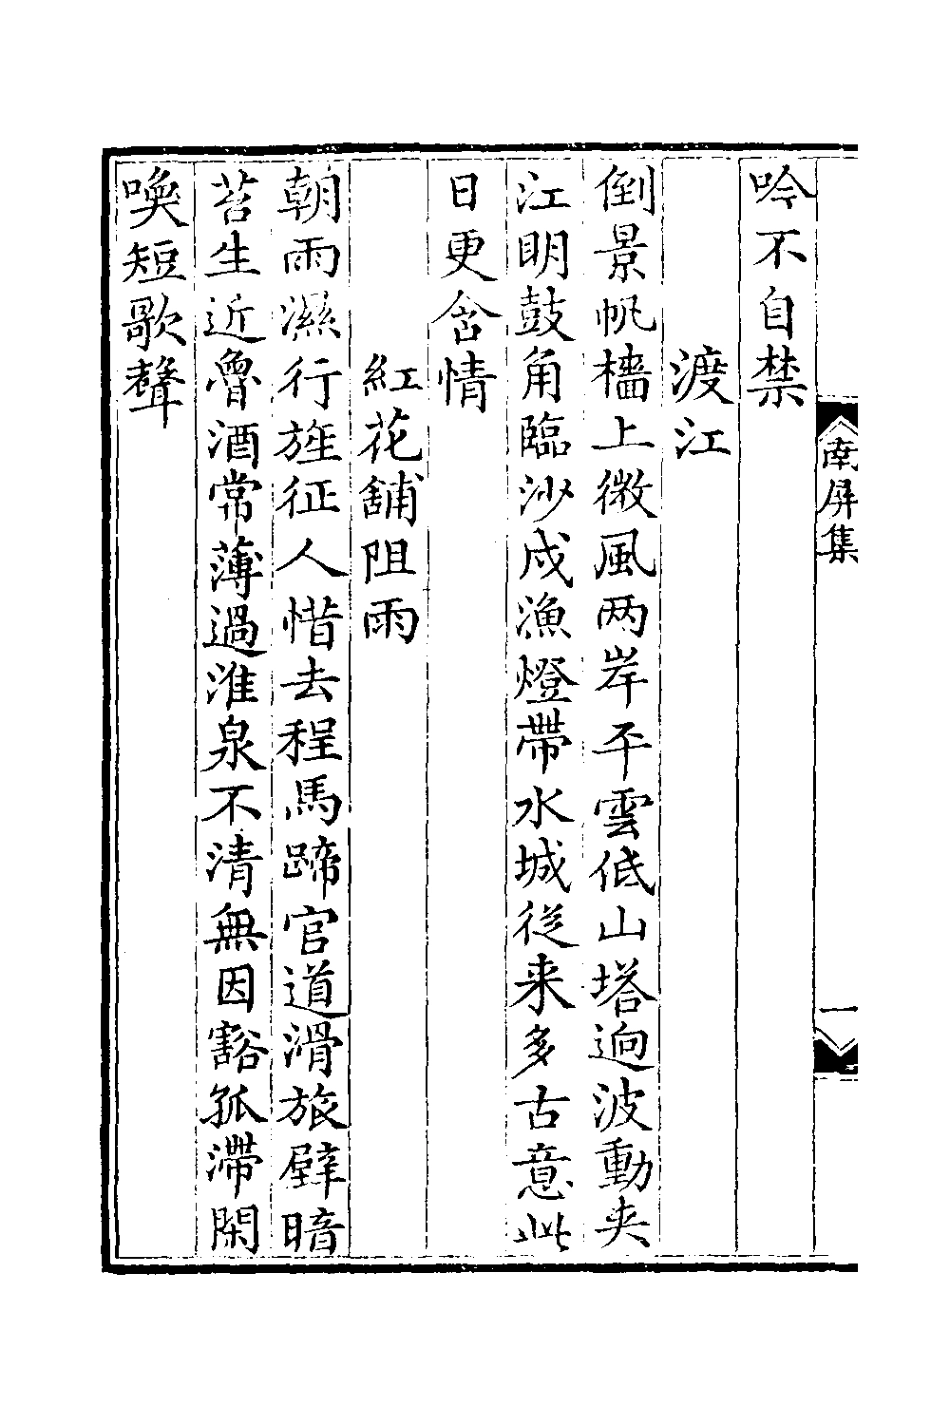 南屏集
一
吟不自禁
渡江
倒景帆檣上微風两岸平雲低山塔逈波動夹
江明鼓角臨沙戍漁燈帶水城從来多古意此
日更含情
紅花舖阻雨
朝雨濕行旌征人惜去程馬蹄官道滑旅壁暗
苔生近魯酒常薄過淮泉不清無因豁孤滯閑
喚短歌聲